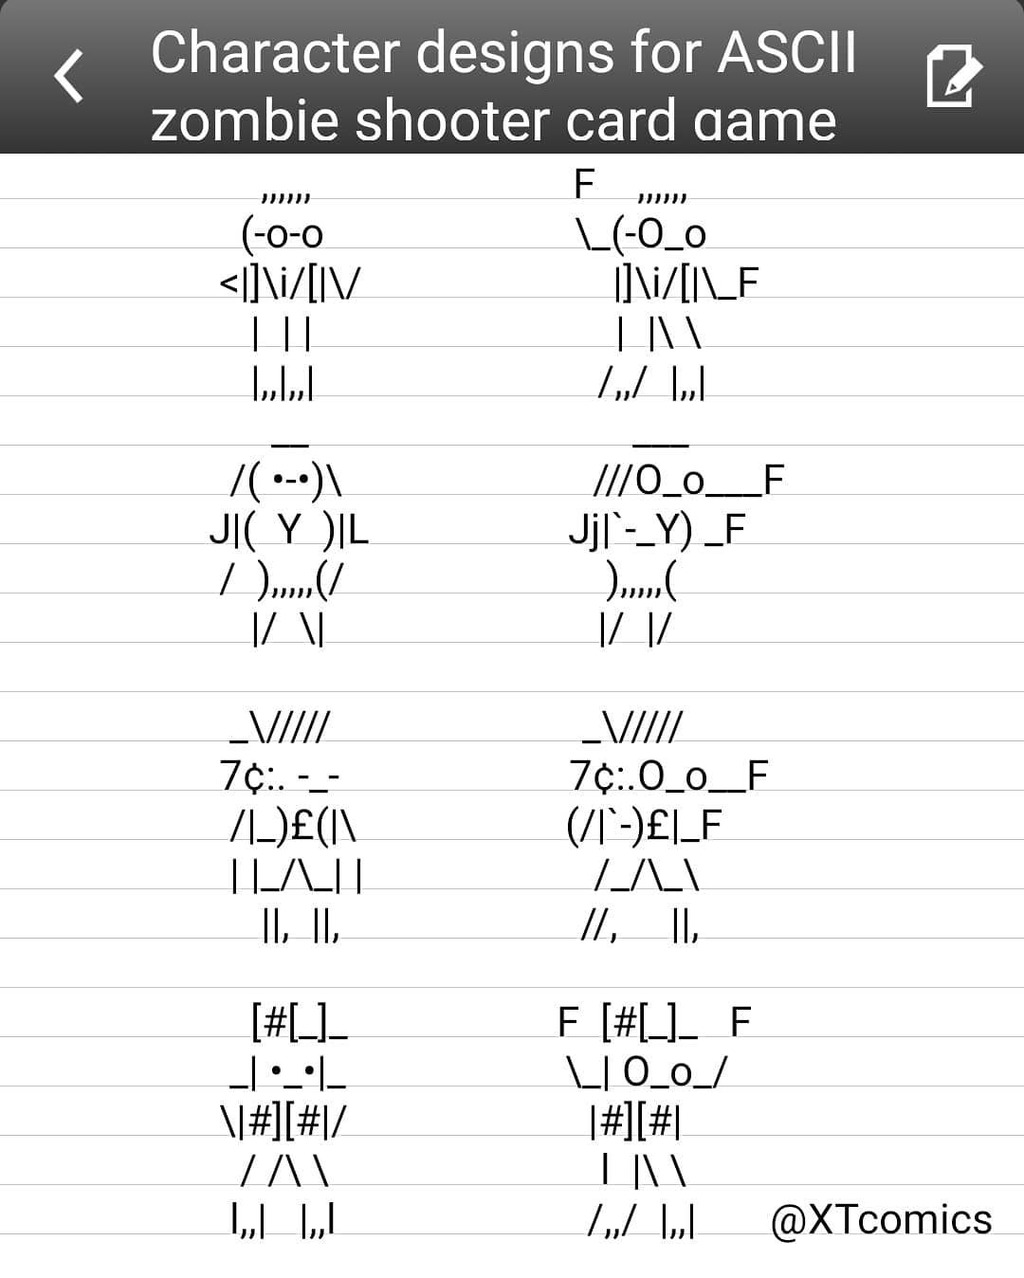 Character designs for ASCII
zombie shooter card game
,,,,,,     F ,,,,,,
(-o-o     \_(-O_o
<|]\i/[|\/     |]\i/[|\_F
| | |     | |\ \
|,,|,,|     /,,/ |,,|
__     ___
/( •-•)\     ///O_o___F
J|( Y )|L     Jj|`-_Y) _F
/ ),,,,,(/     ),,,,,(
|/ \|     |/ |/
_\/////     _\/////
7¢:. -_-     7¢:.O_o__F
/|_)£(|\     (/|`-)£|_F
| |_/\_| |     /_/\_\
||, ||,     //, ||,
[#[_]_     F [#[_]_ F
_| •_•|_     \_| O_o_/
\|#][#|/     |#][#|
/ /\ \     | |\ \
|,,| |,,|     /,,/ |,,|
@XTcomics